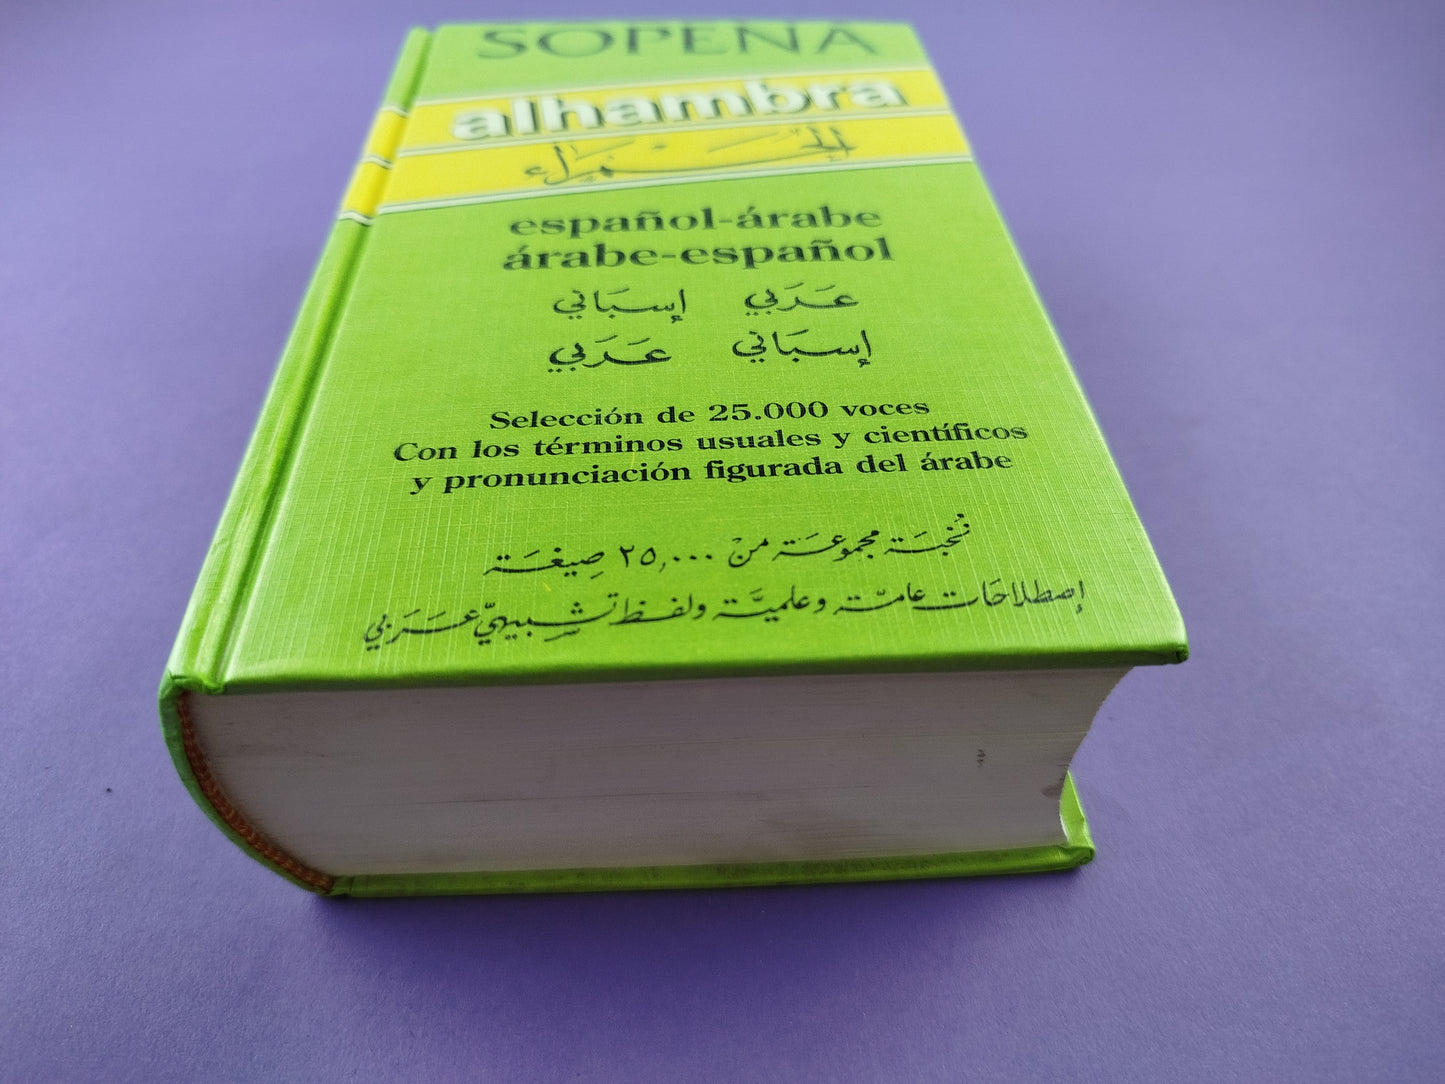 SOPENA
alhambra
الحَمْرَاء
español-árabe
árabe-español
عَرَبي إسبَاني
إسبَاني عَرَبي
Selección de 25.000 voces
Con los términos usuales y científicos
y pronunciación figurada del árabe
نُخبَة مجموعَة منْ ٢٥,٠٠٠ صِيغَة
إصطلاحَات عامّة وعلميَّة ولفظ تشبِيهيّ عَرَبي